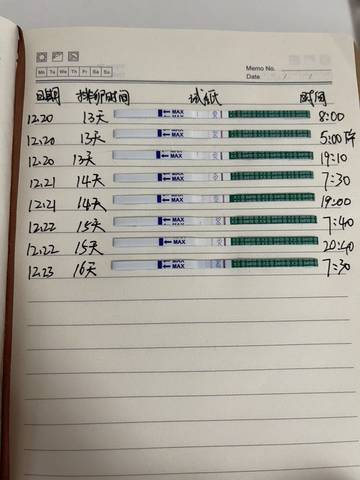 Memo No.
Mo Tu We Th Fr Sa Su
Date
日期 排卵时间 试纸 时间
12.20 13天 MAX 8:00
12.20 13天 MAX 5:00下
12.20 13天 MAX 19:10
12.21 14天 MAX 7:30
12.21 14天 MAX 19:00
12.22 15天 MAX 7:40
12.22 15天 MAX 20:40
12.23 16天 MAX 7:30